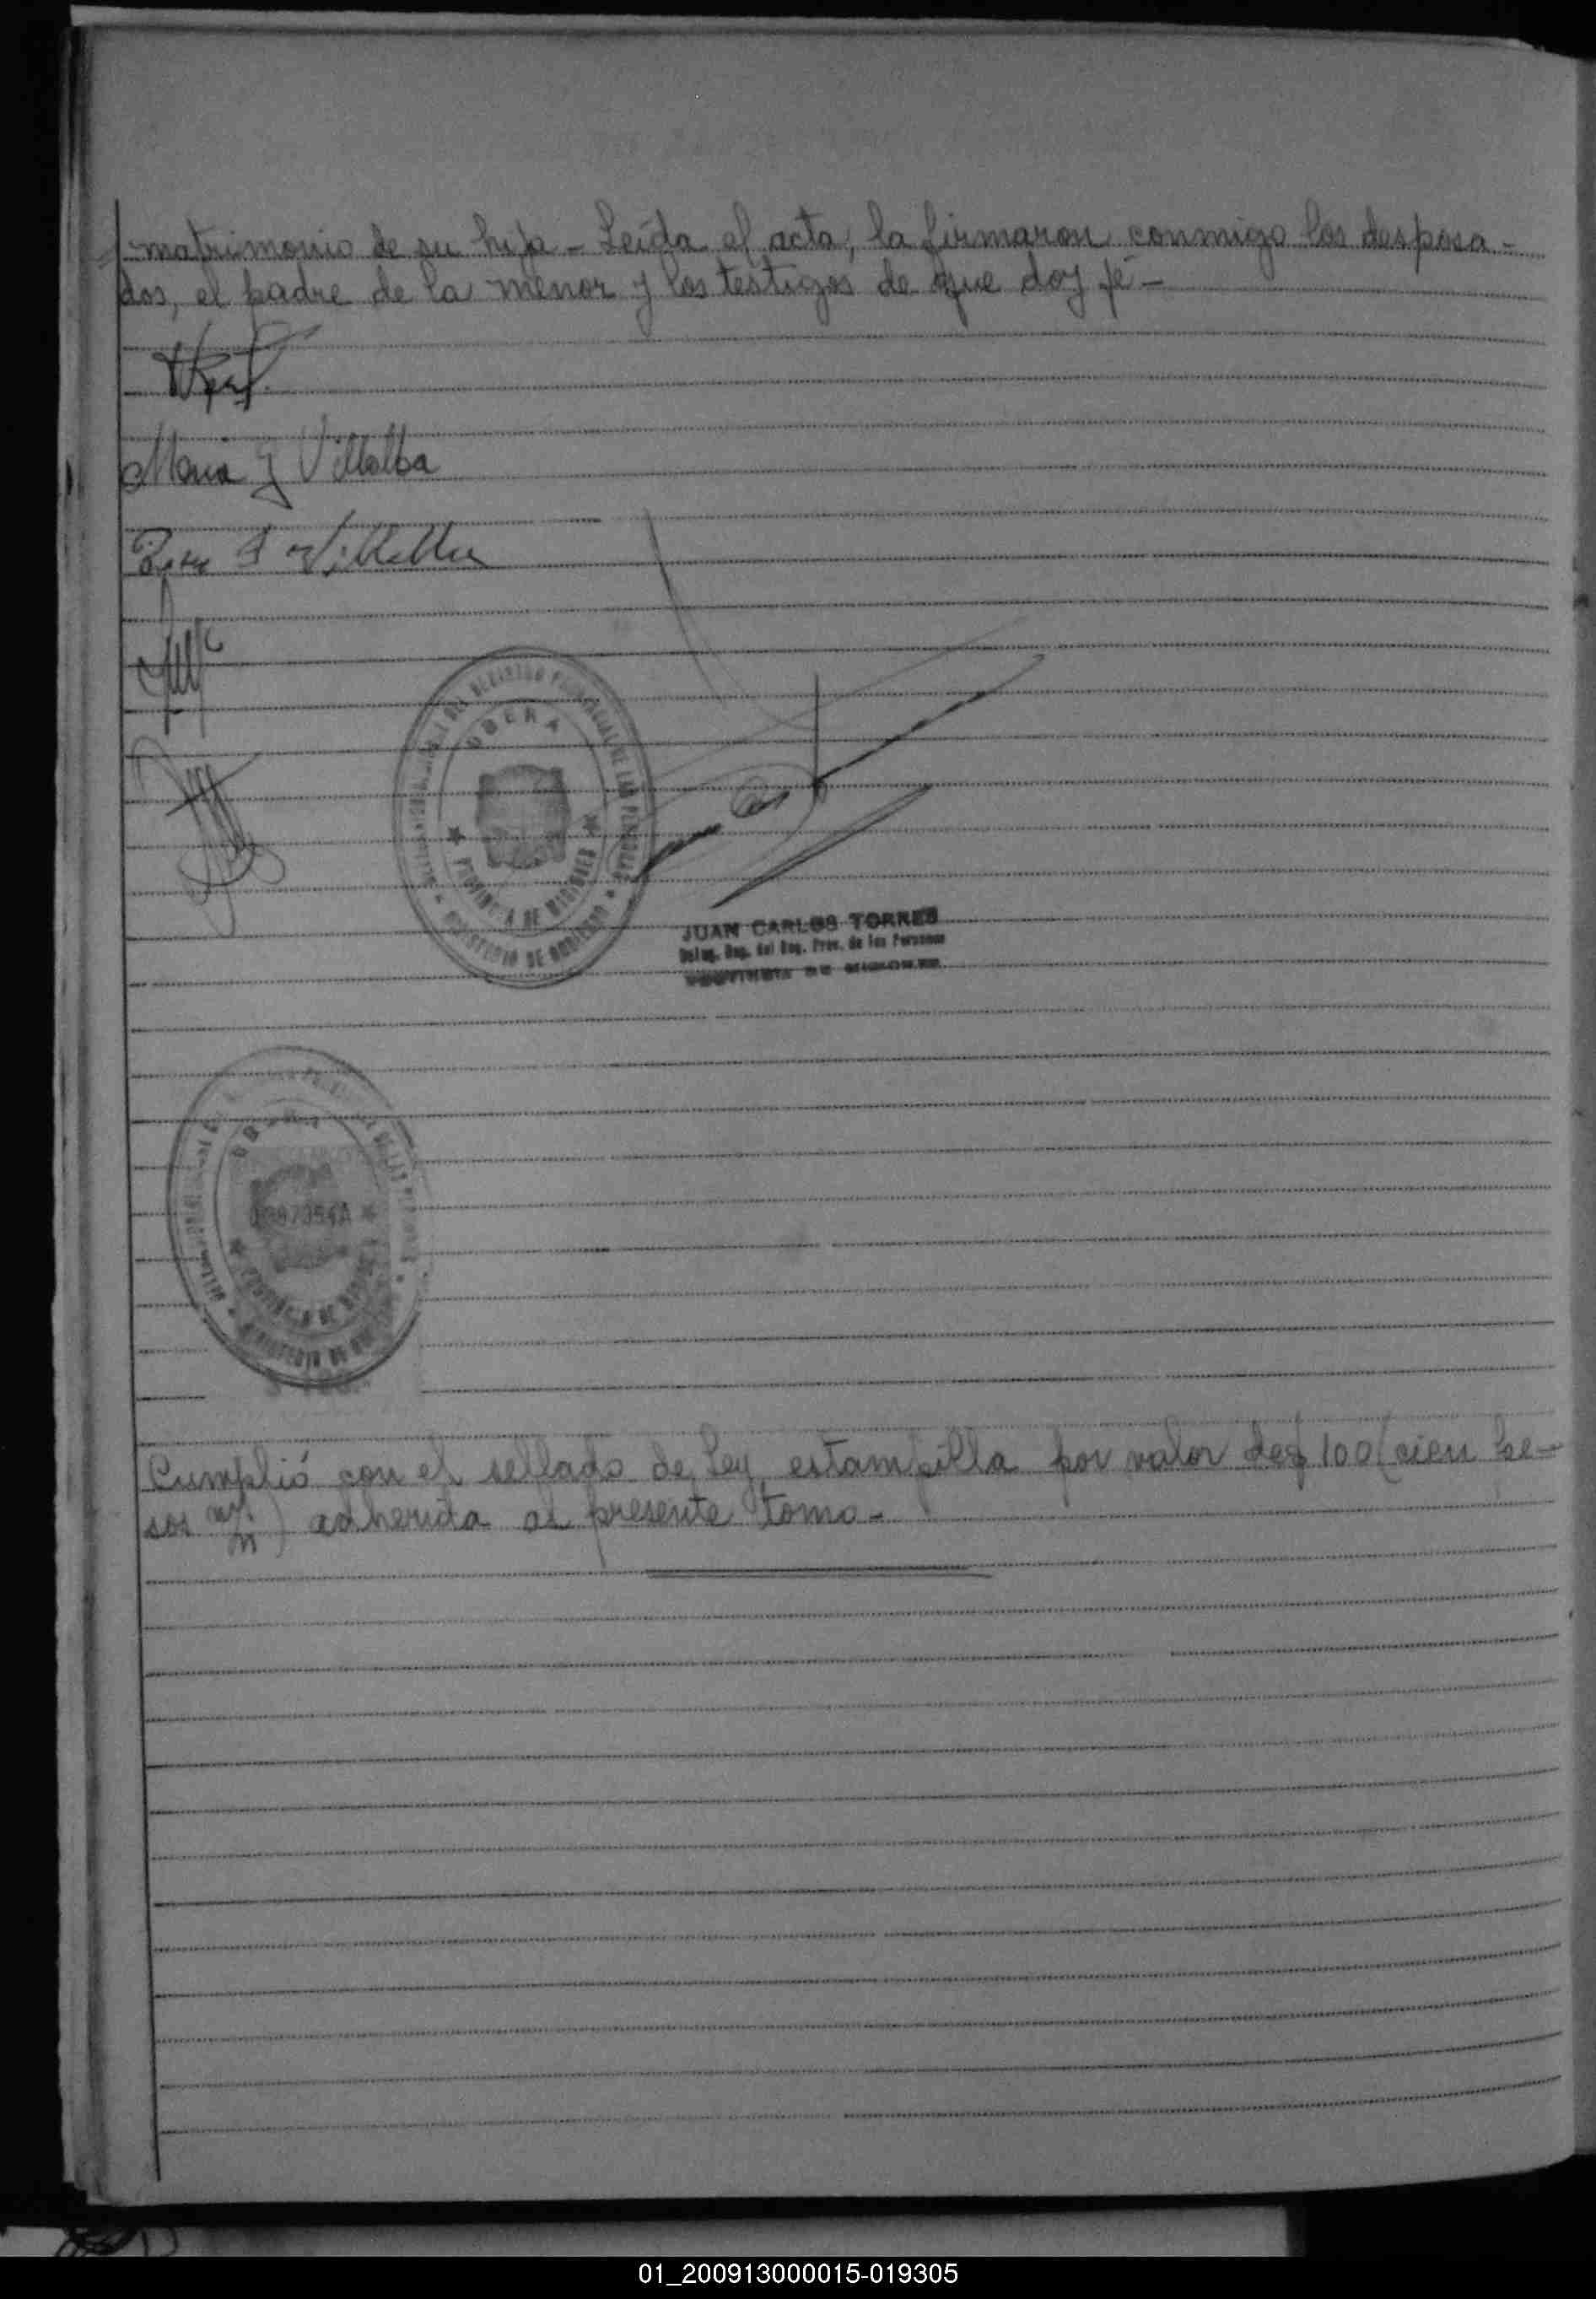 matrimonio de su hija - Leída el acta, la firmaron conmigo los desposa-
dos, el padre de la menor y los testigos de que doy fé -
Maria J Villalba
Villalba
OBERA
PROVINCIA DE MISIONES
MINISTERIO DE GOBIERNO
JUAN CARLOS TORRES
Deleg. Reg. del Reg. Prov. de las Personas
PROVINCIA DE MISIONES
PROVINCIA DE MISIONES
MINISTERIO DE
Cumplió con el sellado de Ley, estampilla por valor de $ 100 (cien pe-
sos m/n) adherida al presente tomo -
01_200913000015-019305